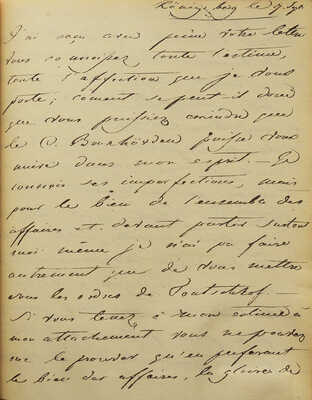 Königsberg le 9 Sep
J'ai reçu avec peine votre lettre
vous connoissez toute l'estime,
toute l'affection que je vous
porte; coment se peut-il donc
que vous puissiez craindre que
le C. Buxhövden puisse vous
nuire dans mon esprit. — Je
connois ses imperfections, mais
pour le bien de l'ensemble des
affaires et devant partir
moi même je n'ai pu faire
autrement que de vous mettre
sous les ordres de
Si vous tenez à mon estime à
mon attachement vous ne pouvez
me le prouver qu'en préferant
le bien des affaires, la gloire de